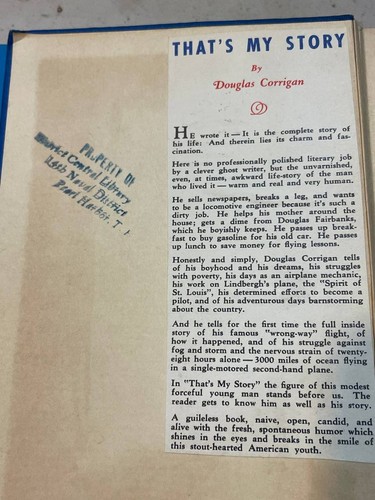 THAT'S MY STORY
By
Douglas Corrigan
HE wrote it — It is the complete story of
his life: And therein lies its charm and fas-
cination.
Here is no professionally polished literary job
by a clever ghost writer, but the unvarnished,
even, at times, awkward life-story of the man
who lived it — warm and real and very human.
He sells newspapers, breaks a leg, and wants
to be a locomotive engineer because it's such a
dirty job. He helps his mother around the
house; gets a dime from Douglas Fairbanks,
which he boyishly keeps. He passes up break-
fast to buy gasoline for his old car. He passes
up lunch to save money for flying lessons.
Honestly and simply, Douglas Corrigan tells
of his boyhood and his dreams, his struggles
with poverty, his days as an airplane mechanic,
his work on Lindbergh's plane, the "Spirit of
St. Louis", his determined efforts to become a
pilot, and of his adventurous days barnstorming
about the country.
And he tells for the first time the full inside
story of his famous "wrong-way" flight, of
how it happened, and of his struggle against
fog and storm and the nervous strain of twenty-
eight hours alone — 3000 miles of ocean flying
in a single-motored second-hand plane.
In "That's My Story" the figure of this modest
forceful young man stands before us. The
reader gets to know him as well as his story.
A guileless book, naive, open, candid, and
alive with the fresh, spontaneous humor which
shines in the eyes and breaks in the smile of
this stout-hearted American youth.
PROPERTY OF
District Central Library
14th Naval District
Pearl Harbor, T.